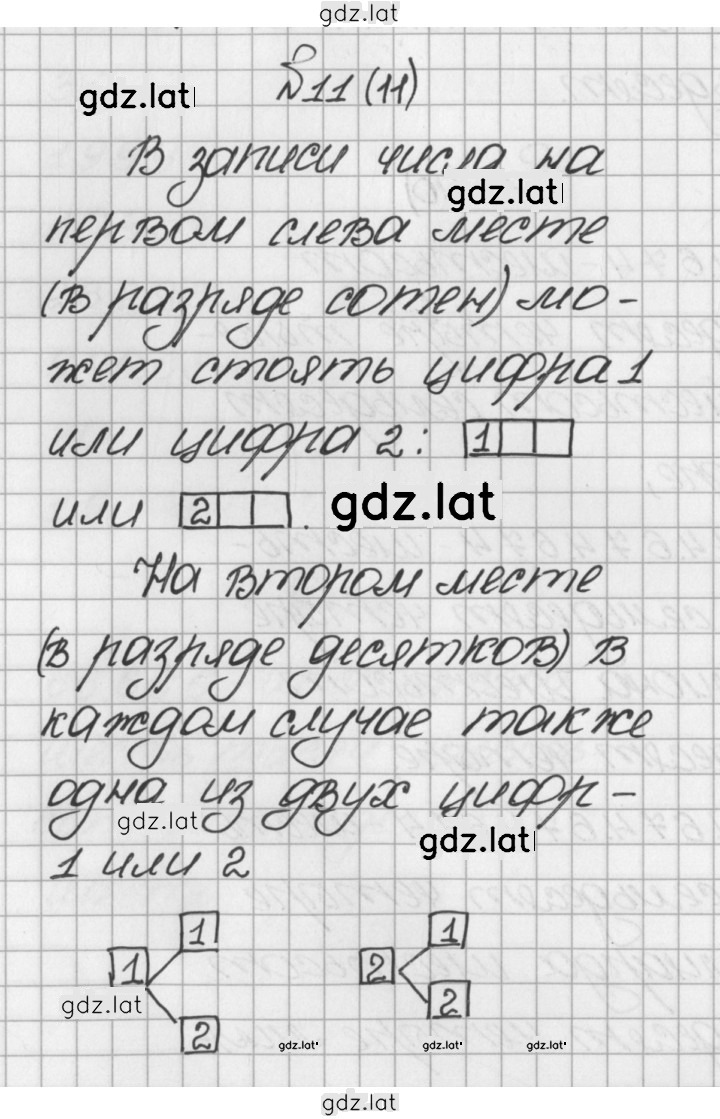 gdz.lat
№11 (11)
gdz.lat
В записи числа на
gdz.lat
первом слева месте
(в разряде сотен) мо-
жет стоять цифра 1
или цифра 2: 1
или 2 . gdz.lat
На втором месте
(в разряде десятков) в
каждом случае также
одна из двух цифр -
gdz.lat
gdz.lat
1 или 2
1 1
1 2
gdz.lat
2 2
gdz.lat gdz.lat gdz.lat
gdz.lat